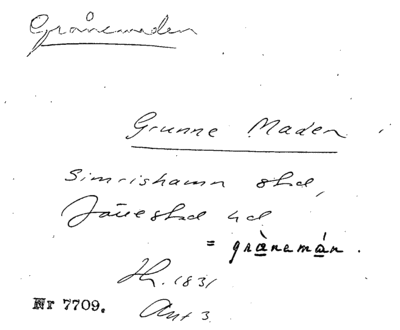 Grånemaden
Grunne Maden
Simrishamn stad,
Järrestad hd
= grànemán.
Jb. 1831
Ant 3.
Nr 7709.